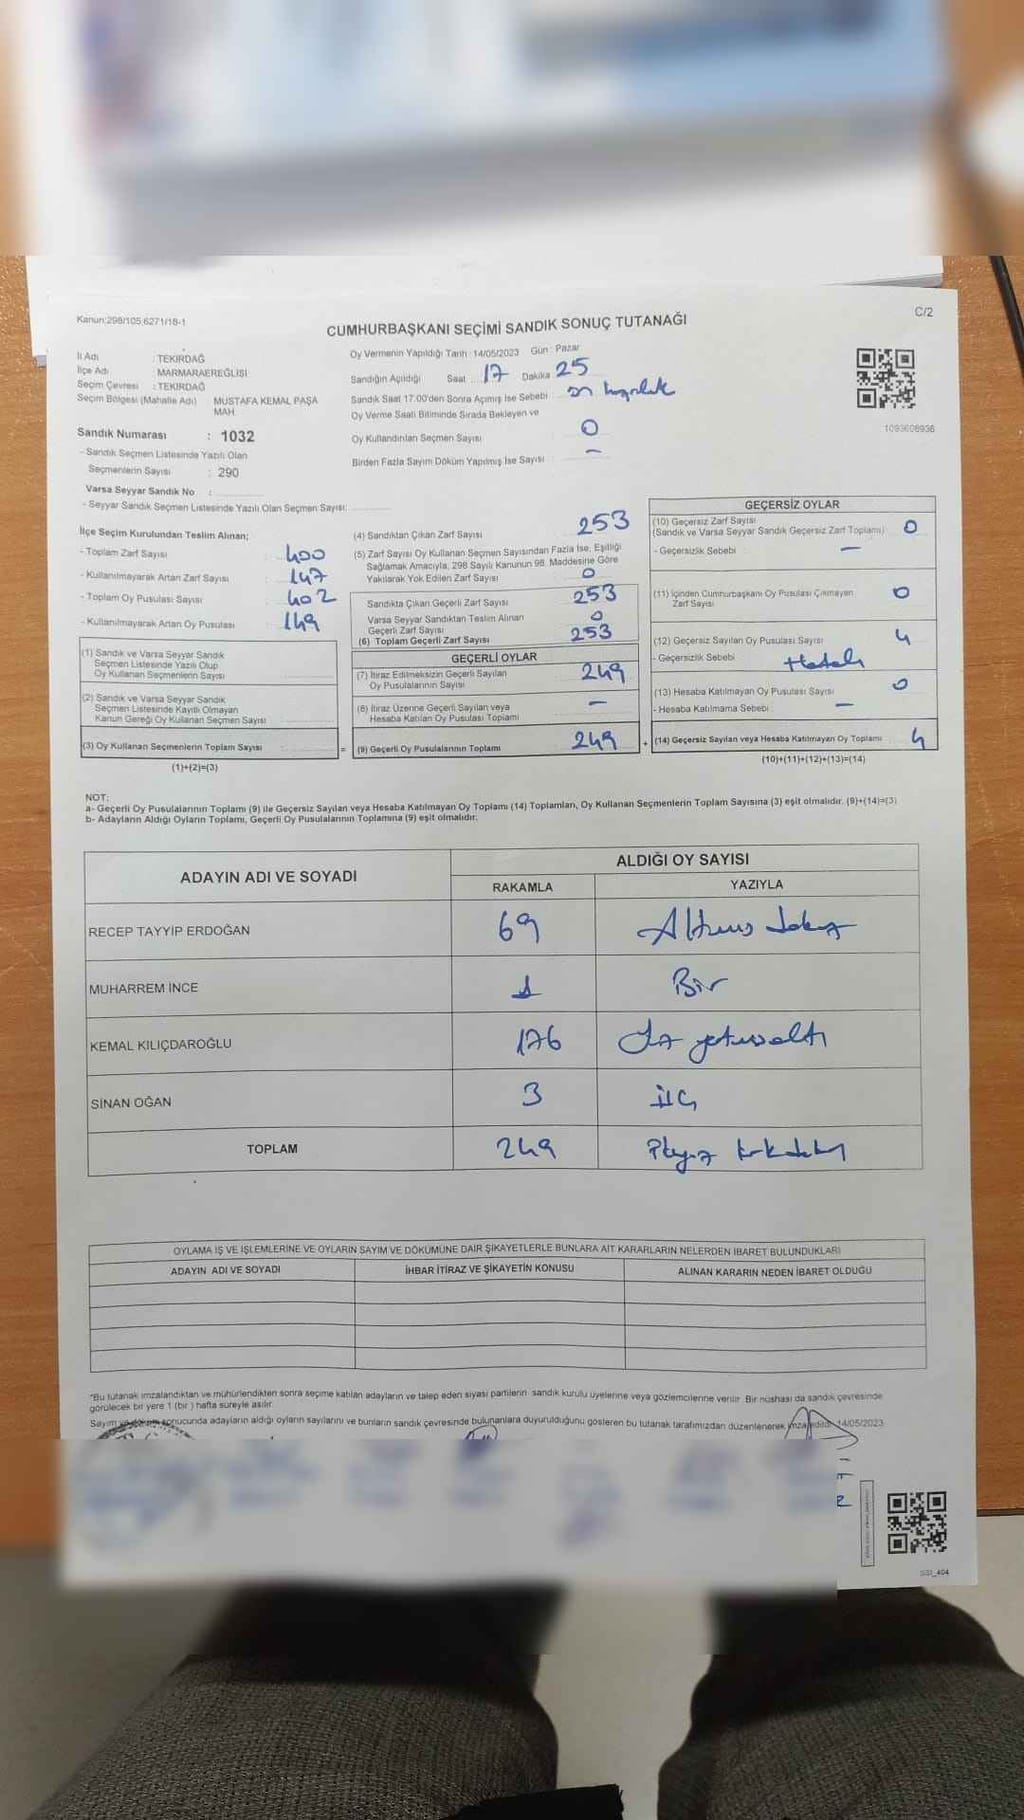 Kanun:298/105,6271/18-1
C/2
CUMHURBAŞKANI SEÇİMİ SANDIK SONUÇ TUTANAĞI
İl Adı : TEKİRDAĞ
İlçe Adı : MARMARAEREĞLİSİ
Seçim Çevresi : TEKİRDAĞ
Seçim Bölgesi (Mahalle Adı) MUSTAFA KEMAL PAŞA MAH
Sandık Numarası : 1032
- Sandık Seçmen Listesinde Yazılı Olan
Seçmenlerin Sayısı : 290
Varsa Seyyar Sandık No :
- Seyyar Sandık Seçmen Listesinde Yazılı Olan Seçmen Sayısı:
Oy Vermenin Yapıldığı Tarih :14/05/2023 Gün : Pazar
Sandığın Açıldığı Saat 17 Dakika 25
Sandık Saat 17.00'den Sonra Açımış İse Sebebi :
Oy Verme Saati Bitiminde Sırada Bekleyen ve
Oy Kullandırılan Seçmen Sayısı 0
Birden Fazla Sayım Döküm Yapılmış İse Sayısı : -
1093608936
İlçe Seçim Kurulundan Teslim Alınan;
- Toplam Zarf Sayısı : 400
- Kullanılmayarak Artan Zarf Sayısı : 147
- Toplam Oy Pusulası Sayısı : 402
- Kullanılmayarak Artan Oy Pusulası : 149
(1) Sandık ve Varsa Seyyar Sandık
Seçmen Listesinde Yazılı Olup
Oy Kullanan Seçmenlerin Sayısı :
(2) Sandık ve Varsa Seyyar Sandık
Seçmen Listesinde Kayıtlı Olmayan
Kanun Gereği Oy Kullanan Seçmen Sayısı :
(3) Oy Kullanan Seçmenlerin Toplam Sayısı :
(1)+(2)=(3)
(4) Sandıktan Çıkan Zarf Sayısı 253
(5) Zarf Sayısı Oy Kullanan Seçmen Sayısından Fazla İse, Eşitliği
Sağlamak Amacıyla, 298 Sayılı Kanunun 98. Maddesine Göre
Yakılarak Yok Edilen Zarf Sayısı 0
Sandıkta Çıkan Geçerli Zarf Sayısı 253
Varsa Seyyar Sandıktan Teslim Alınan
Geçerli Zarf Sayısı 0
(6) Toplam Geçerli Zarf Sayısı 253
GEÇERLİ OYLAR
(7) İtiraz Edilmeksizin Geçerli Sayılan
Oy Pusulalarının Sayısı 249
(8) İtiraz Üzerine Geçerli Sayılan veya
Hesaba Katılan Oy Pusulası Toplamı -
= (9) Geçerli Oy Pusulalarının Toplamı 249
GEÇERSİZ OYLAR
(10) Geçersiz Zarf Sayısı
(Sandık ve Varsa Seyyar Sandık Geçersiz Zarf Toplamı) 0
- Geçersizlik Sebebi -
(11) İçinden Cumhurbaşkanı Oy Pusulası Çıkmayan
Zarf Sayısı 0
(12) Geçersiz Sayılan Oy Pusulası Sayısı 4
- Geçersizlik Sebebi : Hatalı
(13) Hesaba Katılmayan Oy Pusulası Sayısı 0
- Hesaba Katılmama Sebebi : -
+ (14) Geçersiz Sayılan veya Hesaba Katılmayan Oy Toplamı 4
(10)+(11)+(12)+(13)=(14)
NOT:
a- Geçerli Oy Pusulalarının Toplamı (9) ile Geçersiz Sayılan veya Hesaba Katılmayan Oy Toplamı (14) Toplamları, Oy Kullanan Seçmenlerin Toplam Sayısına (3) eşit olmalıdır. (9)+(14)=(3)
b- Adayların Aldığı Oyların Toplamı, Geçerli Oy Pusulalarının Toplamına (9) eşit olmalıdır.
ADAYIN ADI VE SOYADI ALDIĞI OY SAYISI
RAKAMLA YAZIYLA
RECEP TAYYİP ERDOĞAN 69 Altmış dokuz
MUHARREM İNCE 1 Bir
KEMAL KILIÇDAROĞLU 176 Yüz yetmiş altı
SİNAN OĞAN 3 üç
TOPLAM 249
OYLAMA İŞ VE İŞLEMLERİNE VE OYLARIN SAYIM VE DÖKÜMÜNE DAİR ŞİKAYETLERLE BUNLARA AİT KARARLARIN NELERDEN İBARET BULUNDUKLARI
ADAYIN ADI VE SOYADI İHBAR İTİRAZ VE ŞİKAYETİN KONUSU ALINAN KARARIN NEDEN İBARET OLDUĞU
*Bu tutanak imzalandıktan ve mühürlendikten sonra seçime katılan adayların ve talep eden siyasi partilerin sandık kurulu üyelerine veya gözlemcilerine verilir. Bir nüshası da sandık çevresinde
görülecek bir yere 1 (bir ) hafta süreyle asılır.
Sayım ve döküm sonucunda adayların aldığı oyların sayılarını ve bunların sandık çevresinde bulunanlara duyurulduğunu gösteren bu tutanak tarafımızdan düzenlenerek imza edildi. 14/05/2023